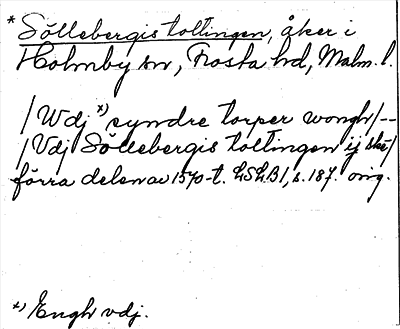 * Söllebergis toltingen, åker i
Holmby sn, Frosta hd, Malm. l.
/Wdj *) syndre torper wongh/--
/Vdj Söllebergis toltingen ij ske/
förra delen av 1570-t. LSLB1, s. 187. orig.
*) Engh vdj.